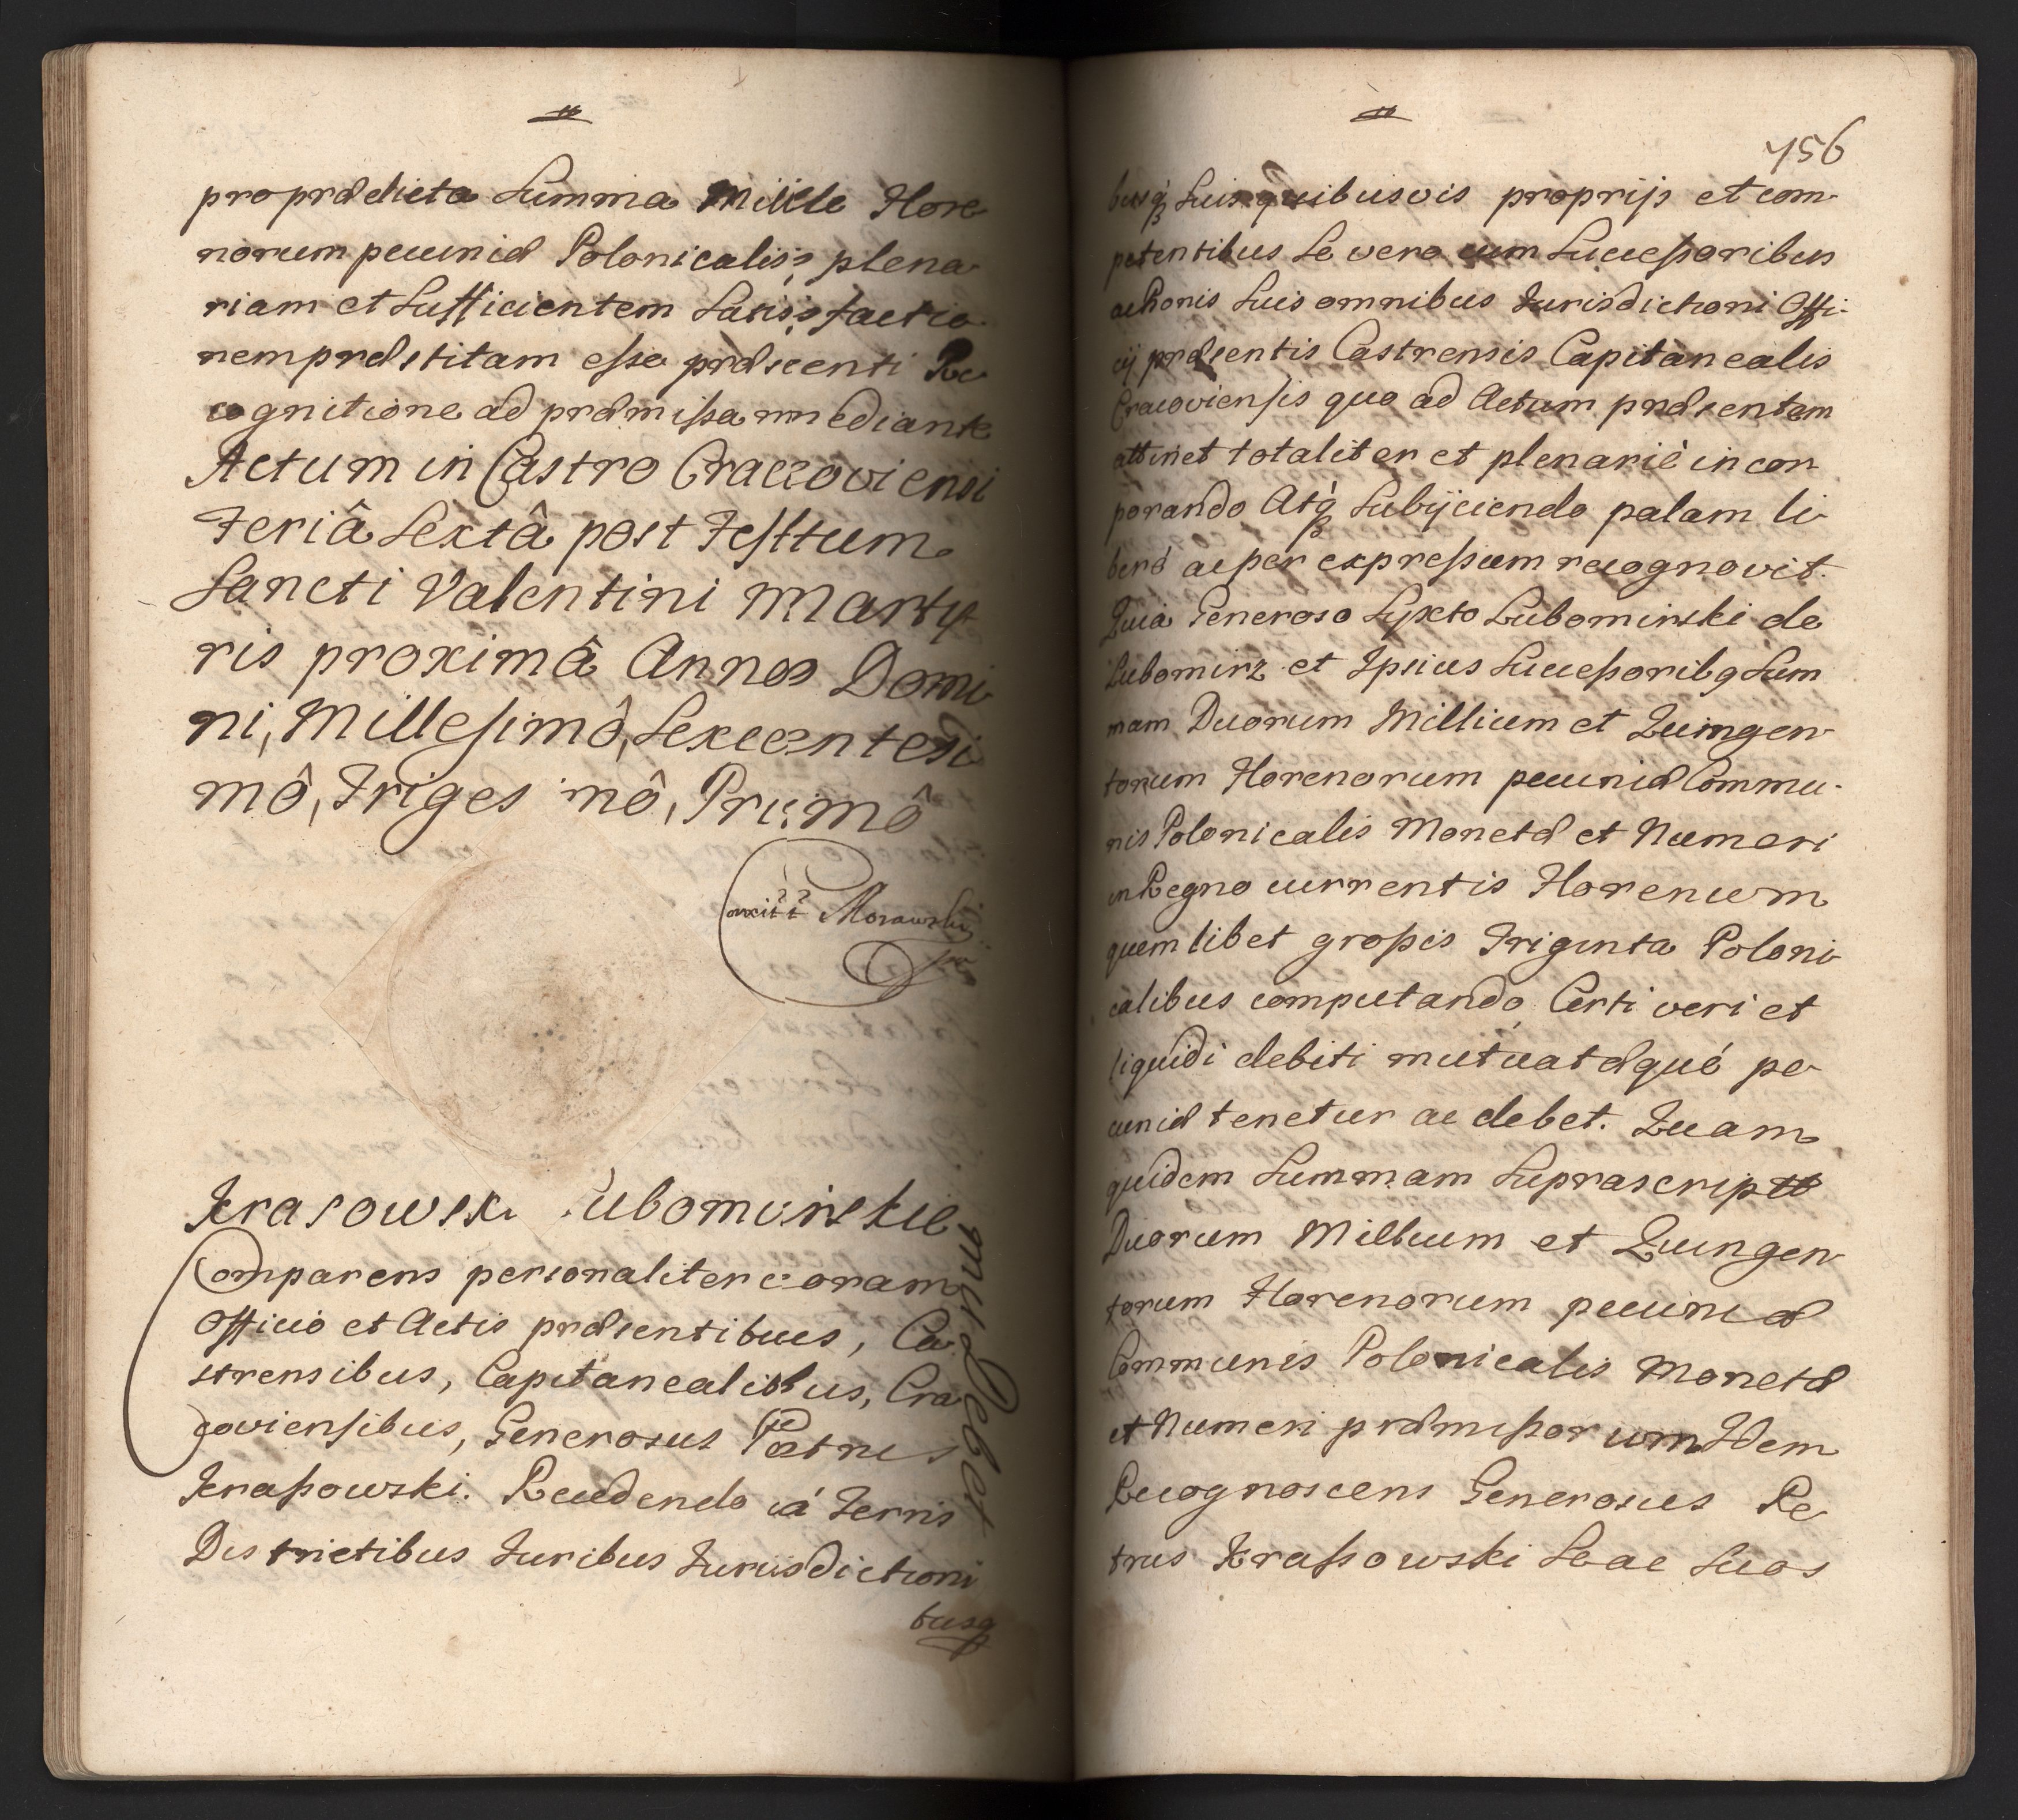 pro prædicta Summa Mille Flore
norum pecuniæ Polonicalis, plena
riam et Sufficientem Satis,factio
nem præstitam esse præsenti Re
cognitione ad præmissa mediante
Actum in Castro Cracoviensi
Feriâ Sextâ post Festtum
Sancti Valentini Marty
ris proximâ Annoo Domi
ni, Millesimô, Sexcentesi
mô, Triges mô, Primô
Morawski
Krasowski Lubomirskie
mu Debet
Comparens personaliter coram
Officio et Actis præsentibus, Ca
strensibus, Capitanealibus, Cra
coviensibus, Generosus Petrus
Krassowski. Recedendo á Terris
Districtibus Iuribus Iurisdictioni
busq
756
busq Suis quibusvis proprijs et com-
petentibus Se vero cum Successoribus
ac Bonis Suis omnibus Iurisdictioni Offi-
cij præsentis Castrensis Capitanealis
Cracoviensis quo ad Actum præsentem
attinet totaliter et plenariè incor
porando Atq Subijciendo palam li
berè ac per expressum recognovit.
Quia Generoso Syxto Lubomirski de
Lubomirz et Ipsius Successoribq Sum
mam Duorum Millium et Quingen
torum Florenorum pecuniæ Commu-
nis Polonicalis Monetæ et Numeri
in Regno currentis Florenum
quemlibet grossis Triginta Poloni
calibus computando Certi veri et
liquidi debiti mutuatæqué pe
cuniæ tenetur ac debet. Quam
quidem Summam Suprascriptæ
Duorum Millium et Quingen
torum Florenorum pecuniæ
Communis Polonicalis Monetæ
et Numeri præmissorum Idem
Recognoscens Generosus Pe
trus Krassowski Se ac Suos